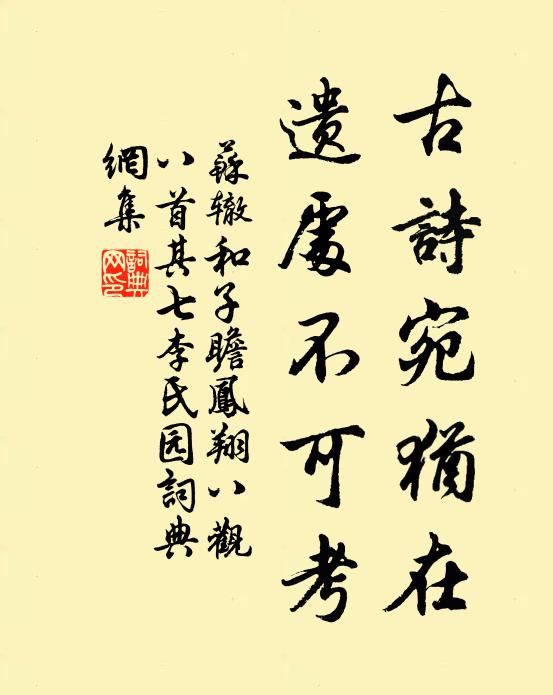 古詩宛猶在
遺處不可考
蘇辙和子瞻鳳翔八觀
八首其七李氏园詞典
網集
詞典
网印